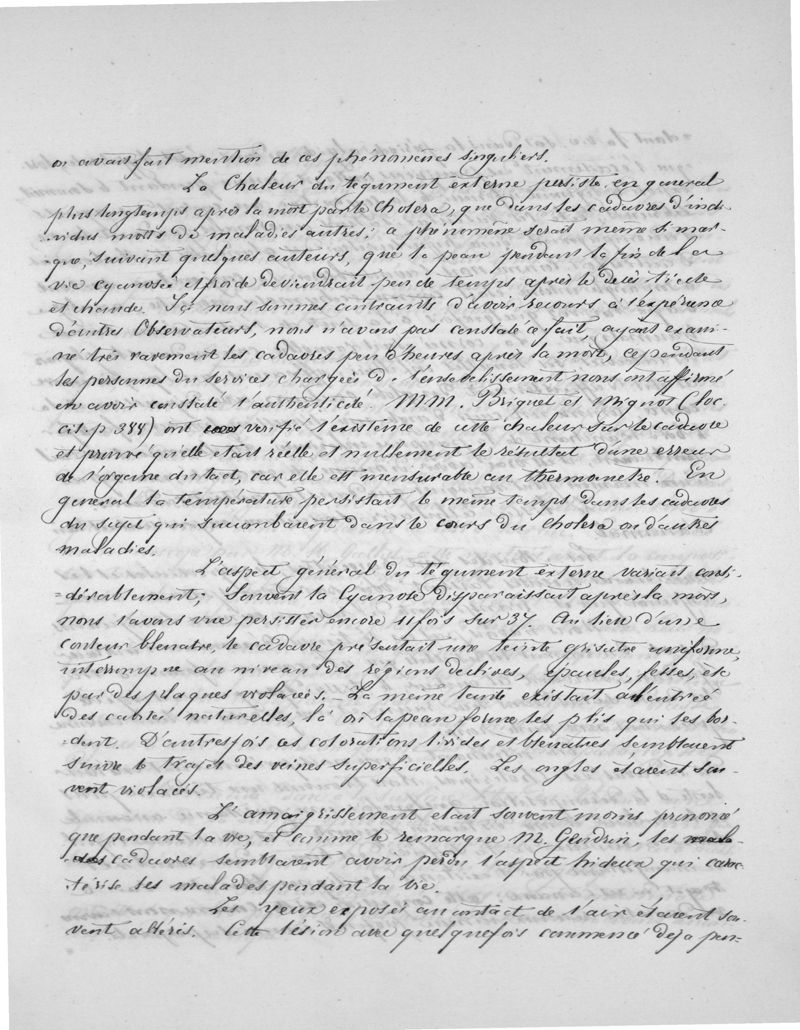 on avait fait mention de ces phénomènes singuliers.
La Chaleur du tégument externe persiste, en general
plus longtemps après la mort par le Cholera, que dans les cadavres d'indi-
vidus morts de maladies autres; ce phénomène serait meme si mar-
-qué, suivant quelques auteurs, que la peau pendant la fin de la
vie cyanosée et froide deviendrait peu de temps après le décès tiede
et chaude. Ici nous sommes contraints d'avoir recours à l'expérience
d'autres Observateurs, nous n'avons pas constaté ce fait, ayant exami-
né très rarement les cadavres peu d'heures après la mort, cependant
les personnes du services chargées de l'ensevelissement nous ont affirmé
en avoir constaté l'authenticité. M.M. Briquet et Mignot (loc.
cit. p 388) ont verifié l'existence de cette chaleur sur le cadavre
et prouvé qu'elle etait réelle et nullement le résultat d'une erreur
de l'organe du tact, car elle est mensurable au thermometre. En
general la température persistait le même temps dans les cadavres
du sujet qui succombaient dans le cours du cholera ou d'autres
maladies.
L'aspect général du tégument externe variait consi-
=dérablement; Souvent la Cyanose disparaissait après la mort,
nous l'avons vue persister encore 11 fois sur 37. Au lieu d'une
couleur bleuatre, le cadavre présentait une teinte grisatre uniforme,
interrompue au niveau des régions declives, épaules, fesses, etc
par des plaques violacés. La meme teinte existait a l'entrée
des cavités naturelles, là où la peau forme les plis qui les bor-
-dent. D'autres fois ces colorations livides et bleuatres semblaient
suivre le trajet des veines superficielles. Les ongles étaient sou-
vent violacés.
L'amaigrissement etait souvent moins prononcé
que pendant la vie, et comme le remarque M. Gendrin, les
cadavres semblaient avoir perdu l'aspect hideux qui carac-
térise les malades pendant la vie.
Les yeux exposés au contact de l'air étaient sou-
vent altérés. Cette lésion avait quelquefois commencé deja pen-